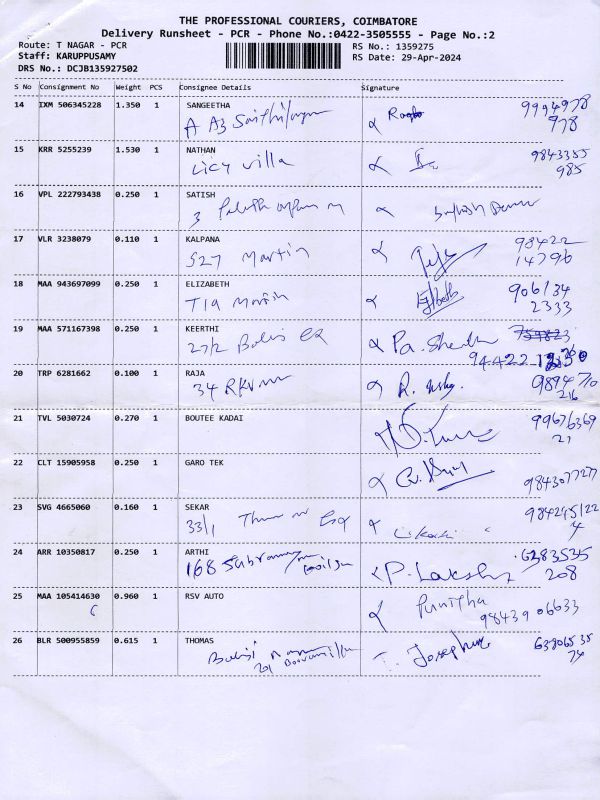 THE PROFESSIONAL COURIERS, COIMBATORE
Delivery Runsheet - PCR - Phone No.:0422-3505555 - Page No.:2
Route: T NAGAR - PCR RS No.: 1359275
Staff: KARUPPUSAMY RS Date: 29-Apr-2024
DRS No.: DCJB135927502
S No Consignment No Weight PCS Consignee Details Signature
14 IXM 506345228 1.350 1 SANGEETHA 9994978
A A3 978
15 KRR 5255239 1.530 1 NATHAN 9843355
Licy villa 985
16 VPL 222793438 0.250 1 SATISH
3
17 VLR 3238079 0.110 1 KALPANA 98422
S27 Martin 14796
18 MAA 943697099 0.250 1 ELIZABETH 906134
T19 Martin 2333
19 MAA 571167398 0.250 1 KEERTHI 759823
27/2 94422
20 TRP 6281662 0.100 1 RAJA
34 RKV R. 216
21 TVL 5030724 0.270 1 BOUTEE KADAI 99676369
21
22 CLT 15905958 0.250 1 GARO TEK
9843077277
23 SVG 4665060 0.160 1 SEKAR 984245122
33/1 4
24 ARR 10350817 0.250 1 ARTHI 6383535
168 P. Lakshy 208
25 MAA 105414630 0.960 1 RSV AUTO Punitha
C 98439 06633
26 BLR 500955859 0.615 1 THOMAS
T. Josephine 74